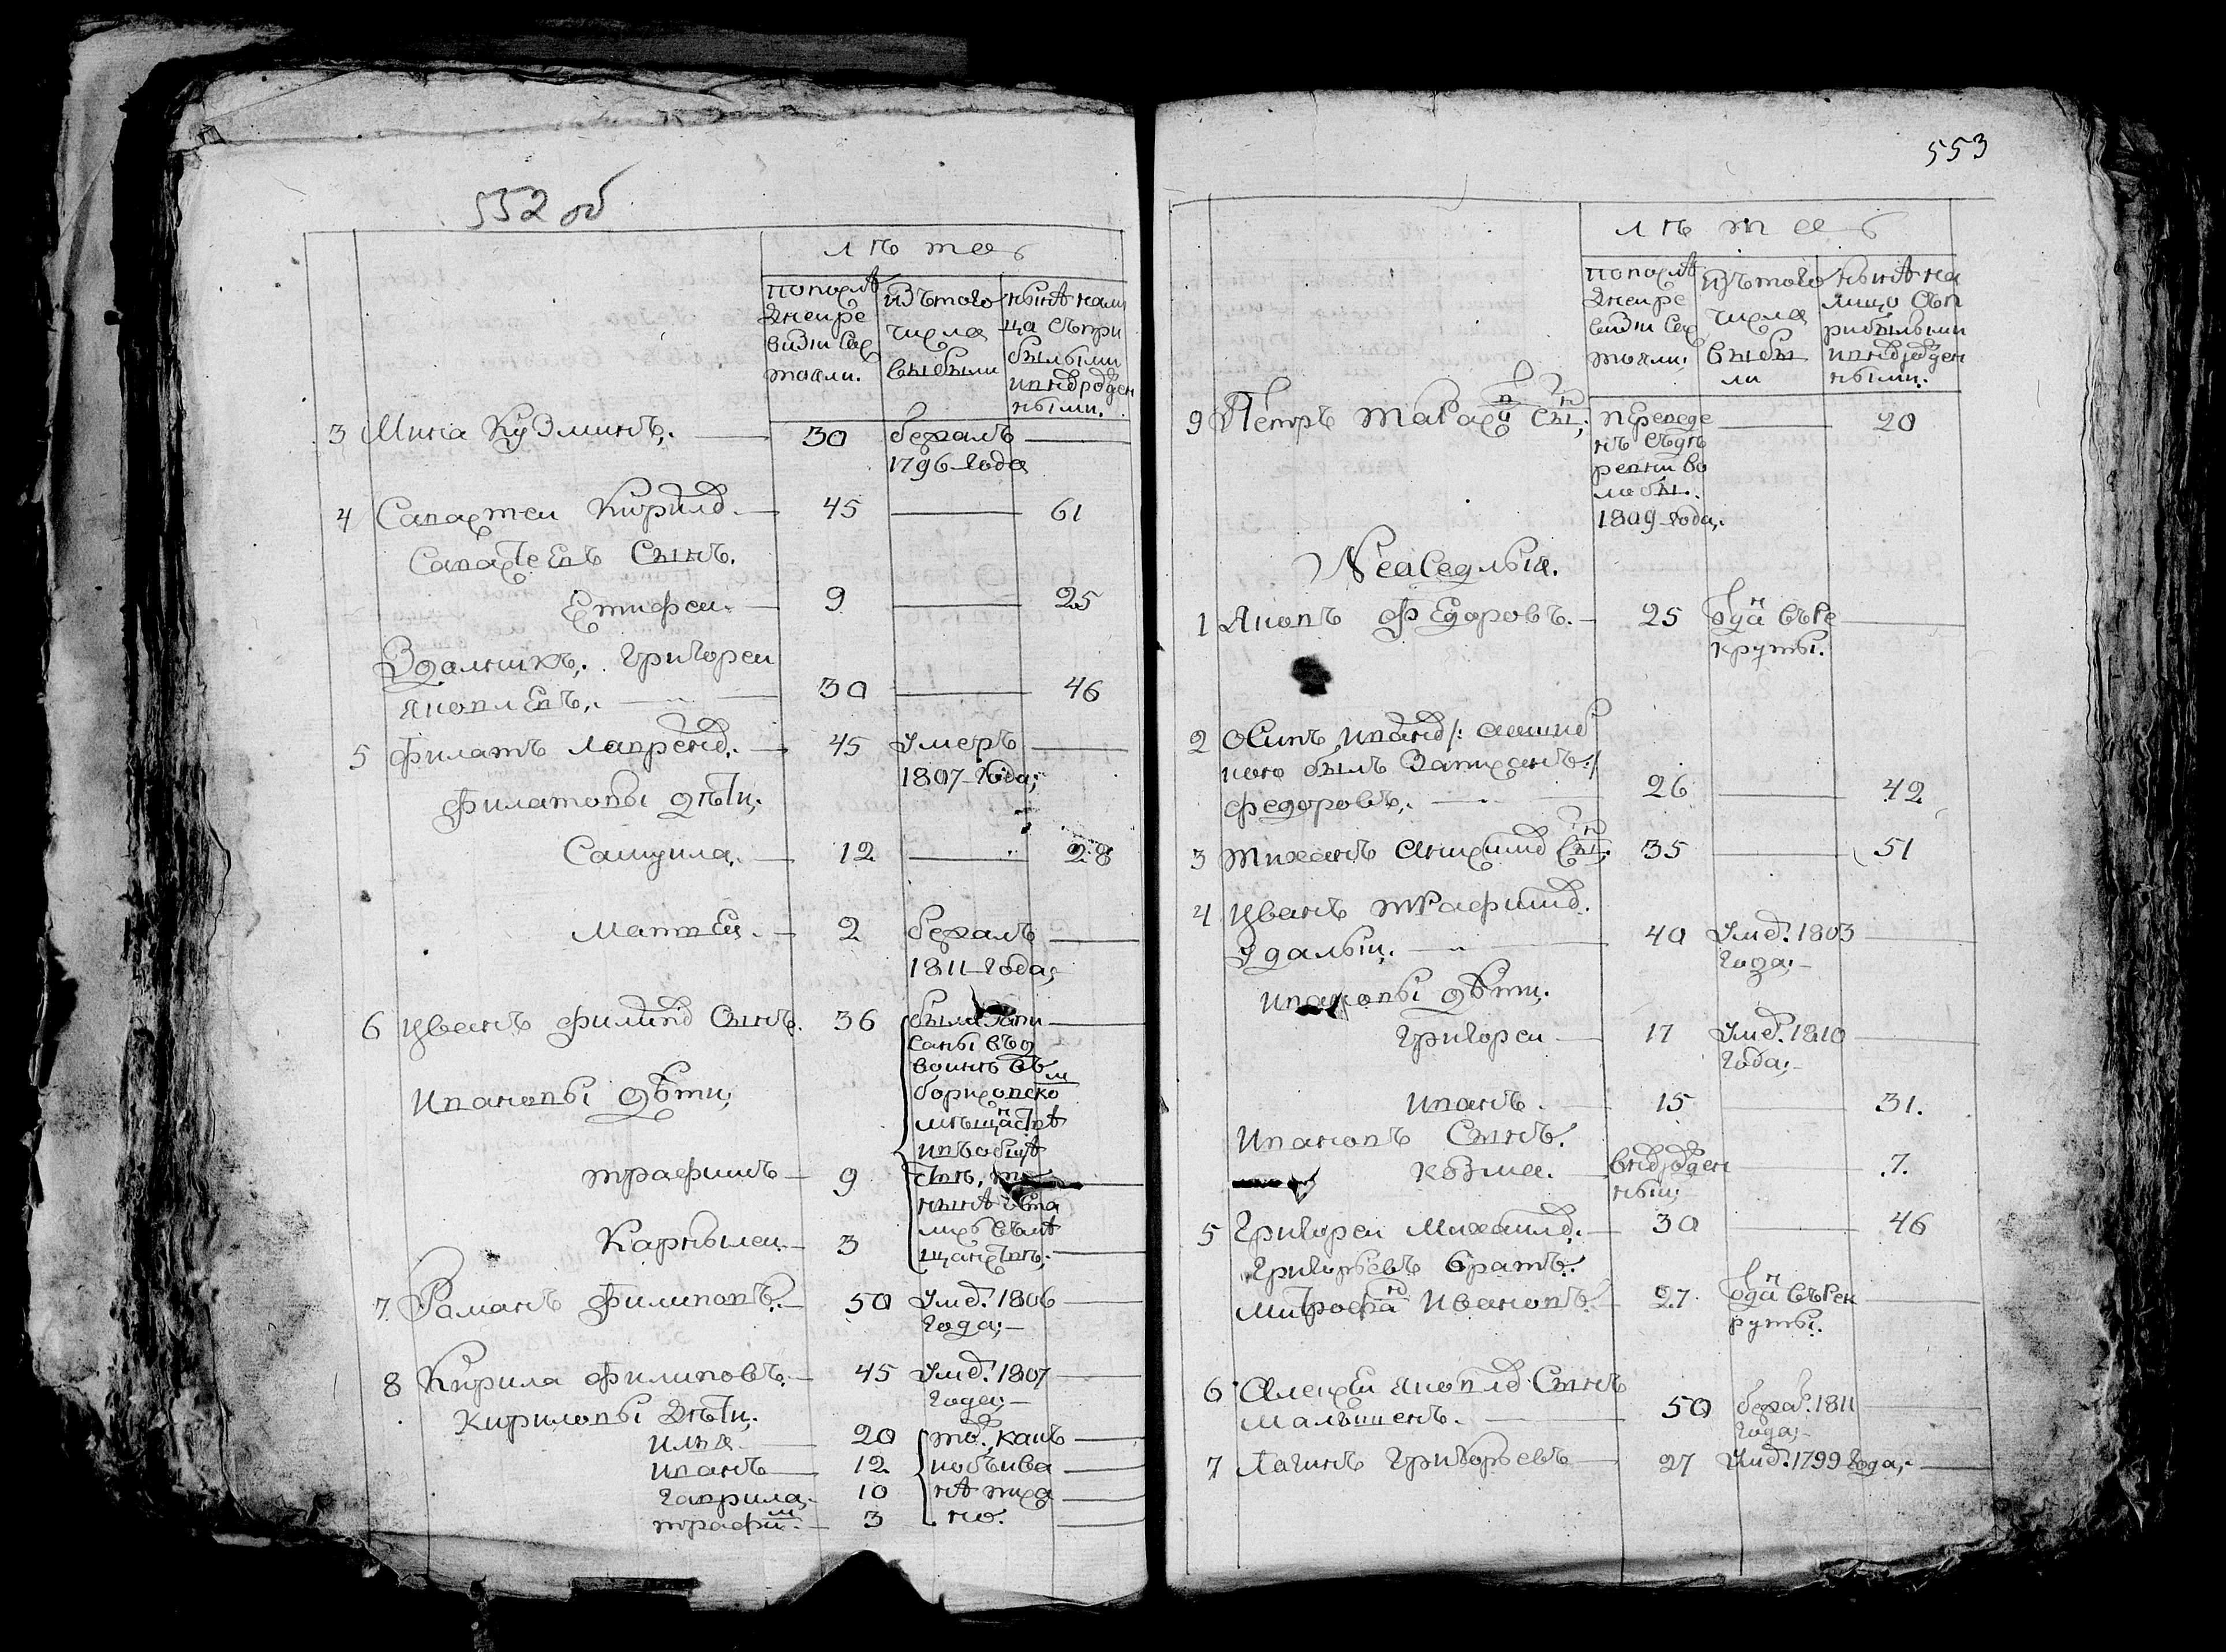 552 об
лѣта
попослѣ
дней ре
визіи сос
тояли.
изъ того
числа
выбыли
нынѣ нали
цо съ при
былыми
иновброжден
ными.
3 Мина Кузминъ, 30 бежалъ
1796 года
4 Савастеи Кирилов 45 61
Савастеевъ сынъ.
Етифеи 9 25
Здалникъ, Григореи
Яковлевъ, 30 46
5 Филатъ Лавренов 45 умеръ
1807 года;
Филатовы дѣти,
Самуила 12 28
Матвеи 2 бежалъ
1811 года;
6 Иванъ Филипов сынъ. 36 были запи
саны въ д
воинѣ въ
борисовско м
мѣщанствѣ
и въ обще
нынѣ
Ивановы дѣти,
Трафимъ 9
Карнылеи 3
7 Раманъ Филиповъ, 50 умер. 1806
года;
8 Кирила Филиповъ, 45 умер. 1807
года;
Кириловы дѣти,
Илья 20 то, какъ
Иванъ 12 и объ ива
Гаврила 10 нѣ писа
Трафим 3 но.
553
лѣта
попослѣ
дней ре
визіи сос
тояли,
изъ того
числа
выбы
ли
нынѣ на
лицо съ п
рибылыми
иновброжден
ными.
9 Петръ Тарасов сын, переведе 20
нъ съ дѣ
ревни во
лобы.
1809 года,
Неаседлыя.
1 Яковъ Федоровъ. 25 Одан въ ре
круты.
2 Осипъ Иванов /:
ково былъ записанъ:/
Федоровъ, 26 42
3 Тиханъ Анисимов сын, 35 51
4 Иванъ Трафимов.
Удалыи. 40 умер. 1803
года;
Ивановы дѣти.
Григореи 17 умер. 1810
года;
Иванъ 15 31.
Ивановъ сынъ.
Козма. вноврожден 7.
ныи;
5 Григореи Михаилов 30 46
Григорьевъ братъ.
Митрофан Ивановъ 27 Одан въ рек
руты.
6 Алексеи Яковлев сынъ
Малышенъ. 50 бежал. 1811
года;
7 Лагинъ Григорьевъ 27 умер. 1799 года;